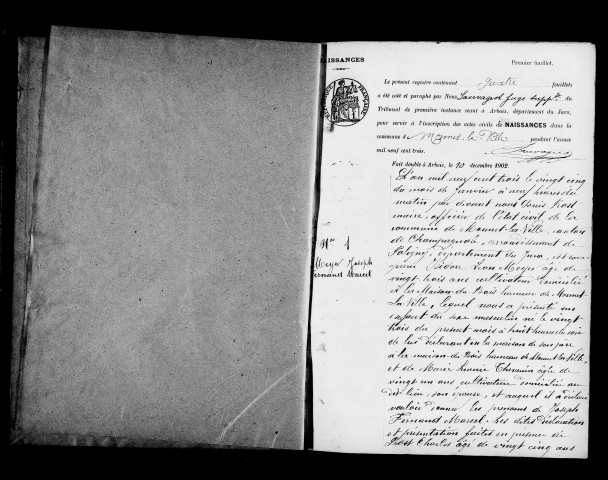 NAISSANCES
Premier feuillet.
Le présent registre contenant quatre feuillets
a été coté et paraphé par Nous, Sauvageot juge suppt. du
Tribunal de première instance séant à Arbois, département du Jura,
pour servir à l'inscription des actes civils de NAISSANCES dans la
commune de Monnet-la-Ville pendant l'année
mil neuf cent trois.
Fait double à Arbois, le 10 décembre 1902.
N° 1
Meyer Joseph
Fernand Marcel
L'an mil neuf cent trois le vingt cinq
du mois de Janvier à neuf heures du
matin par devant nous Louis Prost
maire, officier de l'état civil de la
commune de Monnet-la-Ville, canton
de Champagnole, arrondissement de
Poligny, département du Jura, est com
paru Léon Meyer âgé de
vingt trois ans cultivateur domicilié
à la Maison du Bois hameau de Monnet
la Ville, lequel nous a présenté un
enfant du sexe masculin né le vingt
trois du présent mois à huit heures du soir
de lui déclarant en la maison de son père
à la maison du Bois hameau de Monnet la Ville
et de Marie Thevenin âgée de
vingt un ans, cultivatrice domiciliée au
dit lieu, son épouse, et auquel il a déclaré
vouloir donner les prénoms de Joseph
Fernand Marcel. Les dites déclaration
et présentation faites en présence de
Prost Charles âgé de vingt cinq ans